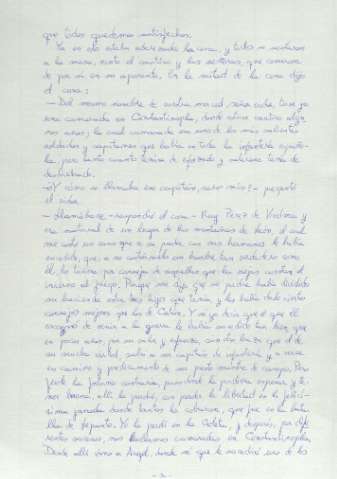 que todos quedemos satisfechos.
Ya en esto estaba aderezada la cena, y todos se sentaron
a la mesa, excto el cautivo y las señoras, que cenaron
de por sí en su aposento. En la mitad de la cena dijo
el cura:
— Del mesmo nombre de vuestra merced, señor oidor, tuve yo
una camarada en Constantinopla, donde estuve cautivo algu-
nos años; la cual camarada era uno de los más valientes
soldados y capitanes que había en toda la infantería españo-
la, pero tanto cuanto tenía de esforzado y valeroso tenía de
desdichado.
—¿Y cómo se llamaba ese capitán, señor mío? — preguntó
el oidor.
— Llamábase — respondió el cura — Ruy Pérez de Viedma, y
era natural de un lugar de las montañas de León, el cual
me contó un caso que a su padre con sus hermanos le había
sucedido, que, a no contármelo un hombre tan verdadero como
él, lo tuviera por conseja de aquellas que las viejas cuentan el
invierno al fuego. Porque me dijo que su padre había dividido
su hacienda entre tres hijos que tenía, y les había dado ciertos
consejos mejores que los de Catón. Y sé yo decir que el que él
escogió de venir a la guerra le había sucedido tan bien, que
en pocos años, por su valor y esfuerzo, sin otro brazo que el de
su mucha virtud, subió a ser capitán de infantería y a verse
en camino y predicamento de ser presto maestre de campo. Pero
fuele la fortuna contraria, pues donde la pudiera esperar y te-
ner buena, allí la perdió, con perder la libertad en la felicí-
sima jornada donde tantos la cobraron, que fue en la bata-
lla de Lepanto. Yo la perdí en la Goleta, y después, por dife-
rentes sucesos, nos hallamos camaradas en Constantinopla.
Desde allí vino a Argel, donde sé que le sucedió uno de los